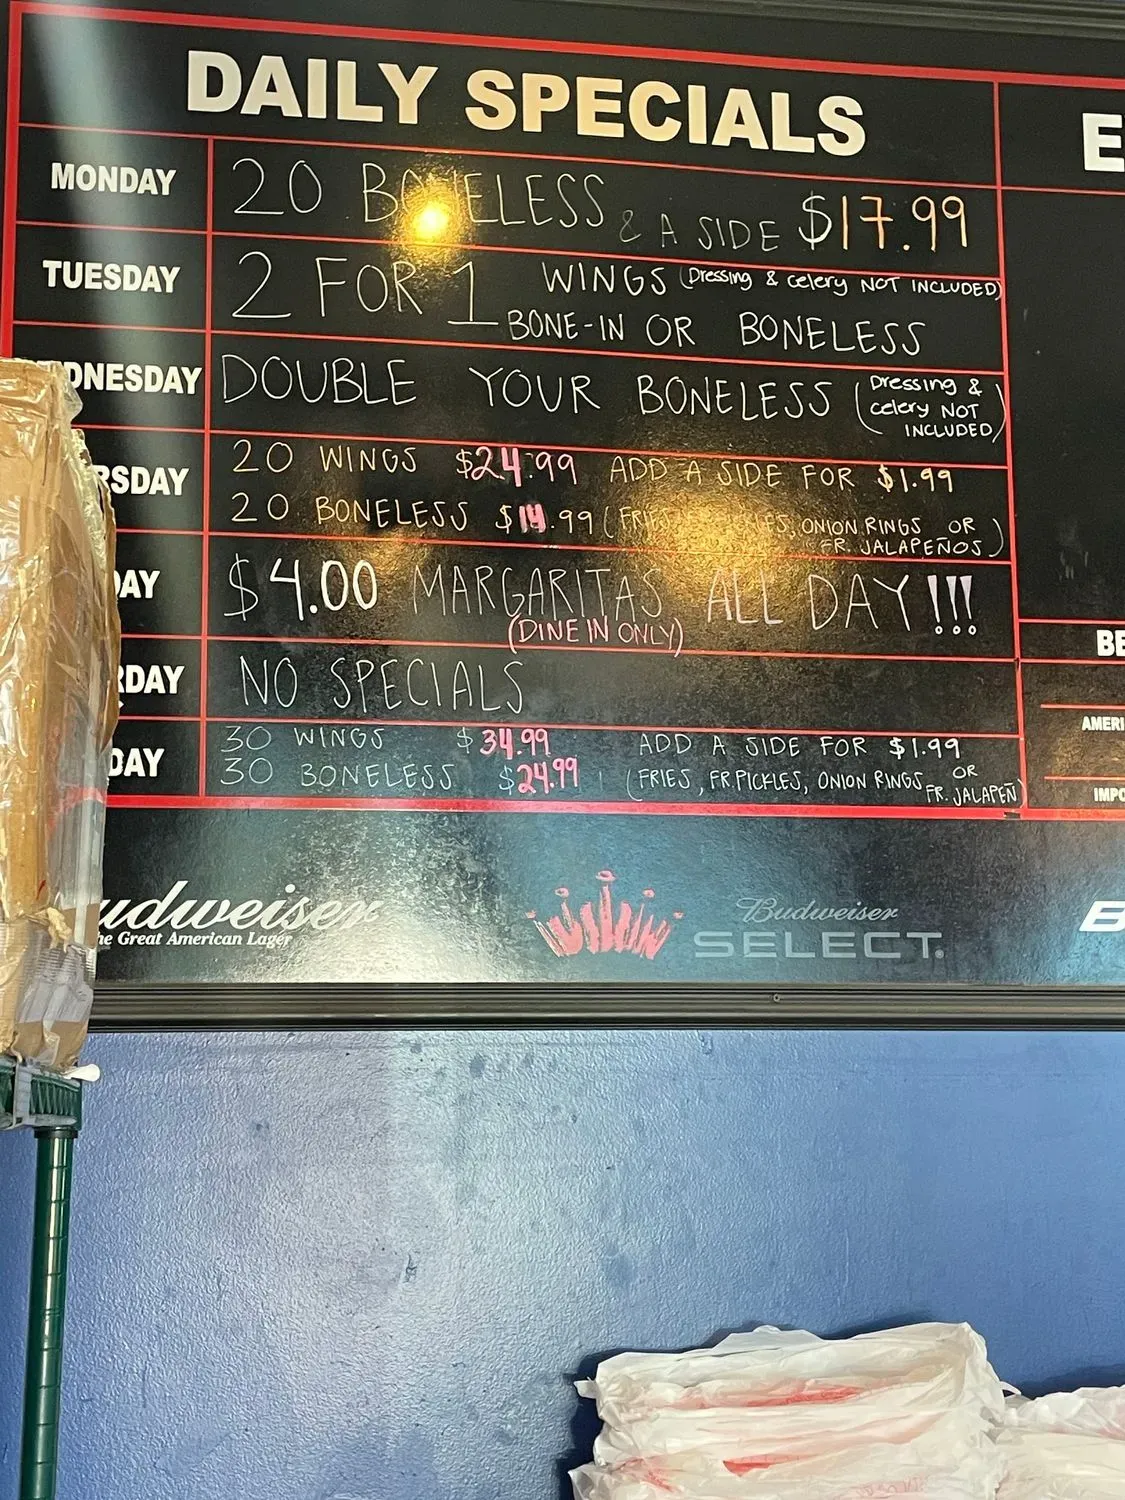 DAILY SPECIALS
E
MONDAY 20 BONELESS & A SIDE $17.99
TUESDAY 2 FOR 1 WINGS (Dressing & celery NOT INCLUDED)
BONE-IN OR BONELESS
DNESDAY DOUBLE YOUR BONELESS (Dressing &
celery NOT
INCLUDED)
RSDAY 20 WINGS $24.99 ADD A SIDE FOR $1.99
20 BONELESS $14.99 (FRIES, ONION RINGS OR
FR. JALAPEÑOS)
DAY $4.00 MARGARITAS ALL DAY!!!
(DINE IN ONLY)
RDAY NO SPECIALS
DAY 30 WINGS $34.99 ADD A SIDE FOR $1.99
30 BONELESS $24.99 (FRIES, FR.PICKLES, ONION RINGS OR
FR. JALAPEÑ)
BE
AMERI
IMPO
udweiser
he Great American Lager
Budweiser
SELECT.
B